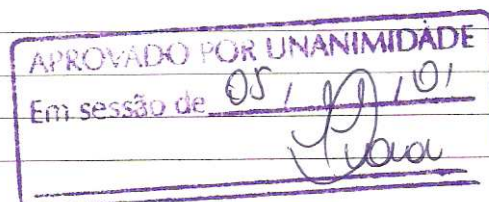 APROVADO POR UNANIMIDADE
Em sessão de 05/ /01